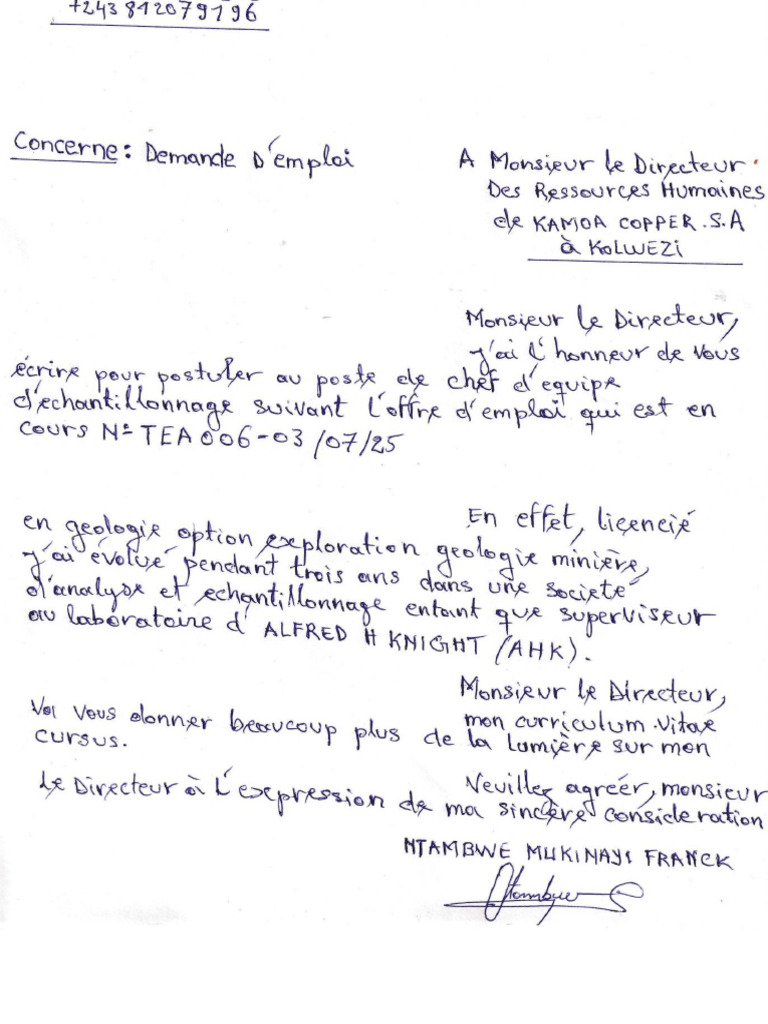 +243 812079196
Concerne : Demande D'emploi
A Monsieur le Directeur
Des Ressources Humaines
de KAMOA COPPER .S.A
à KOLWEZI
Monsieur le Directeur,
j'ai l'honneur de Vous
écrire pour postuler au poste de chef d'equipe
d'échantillonnage suivant l'offre d'emploi qui est en
cours N° TEA 006-03/07/25
En effet, licencié
en geologie option exploration geologie minière,
j'ai évolué pendant trois ans dans une societé
d'analyse et echantillonnage entant que superviseur
au laboratoire d' ALFRED H KNIGHT (AHK).
Monsieur le Directeur,
mon curriculum.vitae
Vous donner beaucoup plus de la lumière sur mon
cursus.
Veuillez agréer, monsieur
le Directeur à l'expression de ma sincère consideration
NTAMBWE MUKINAYI FRANCK